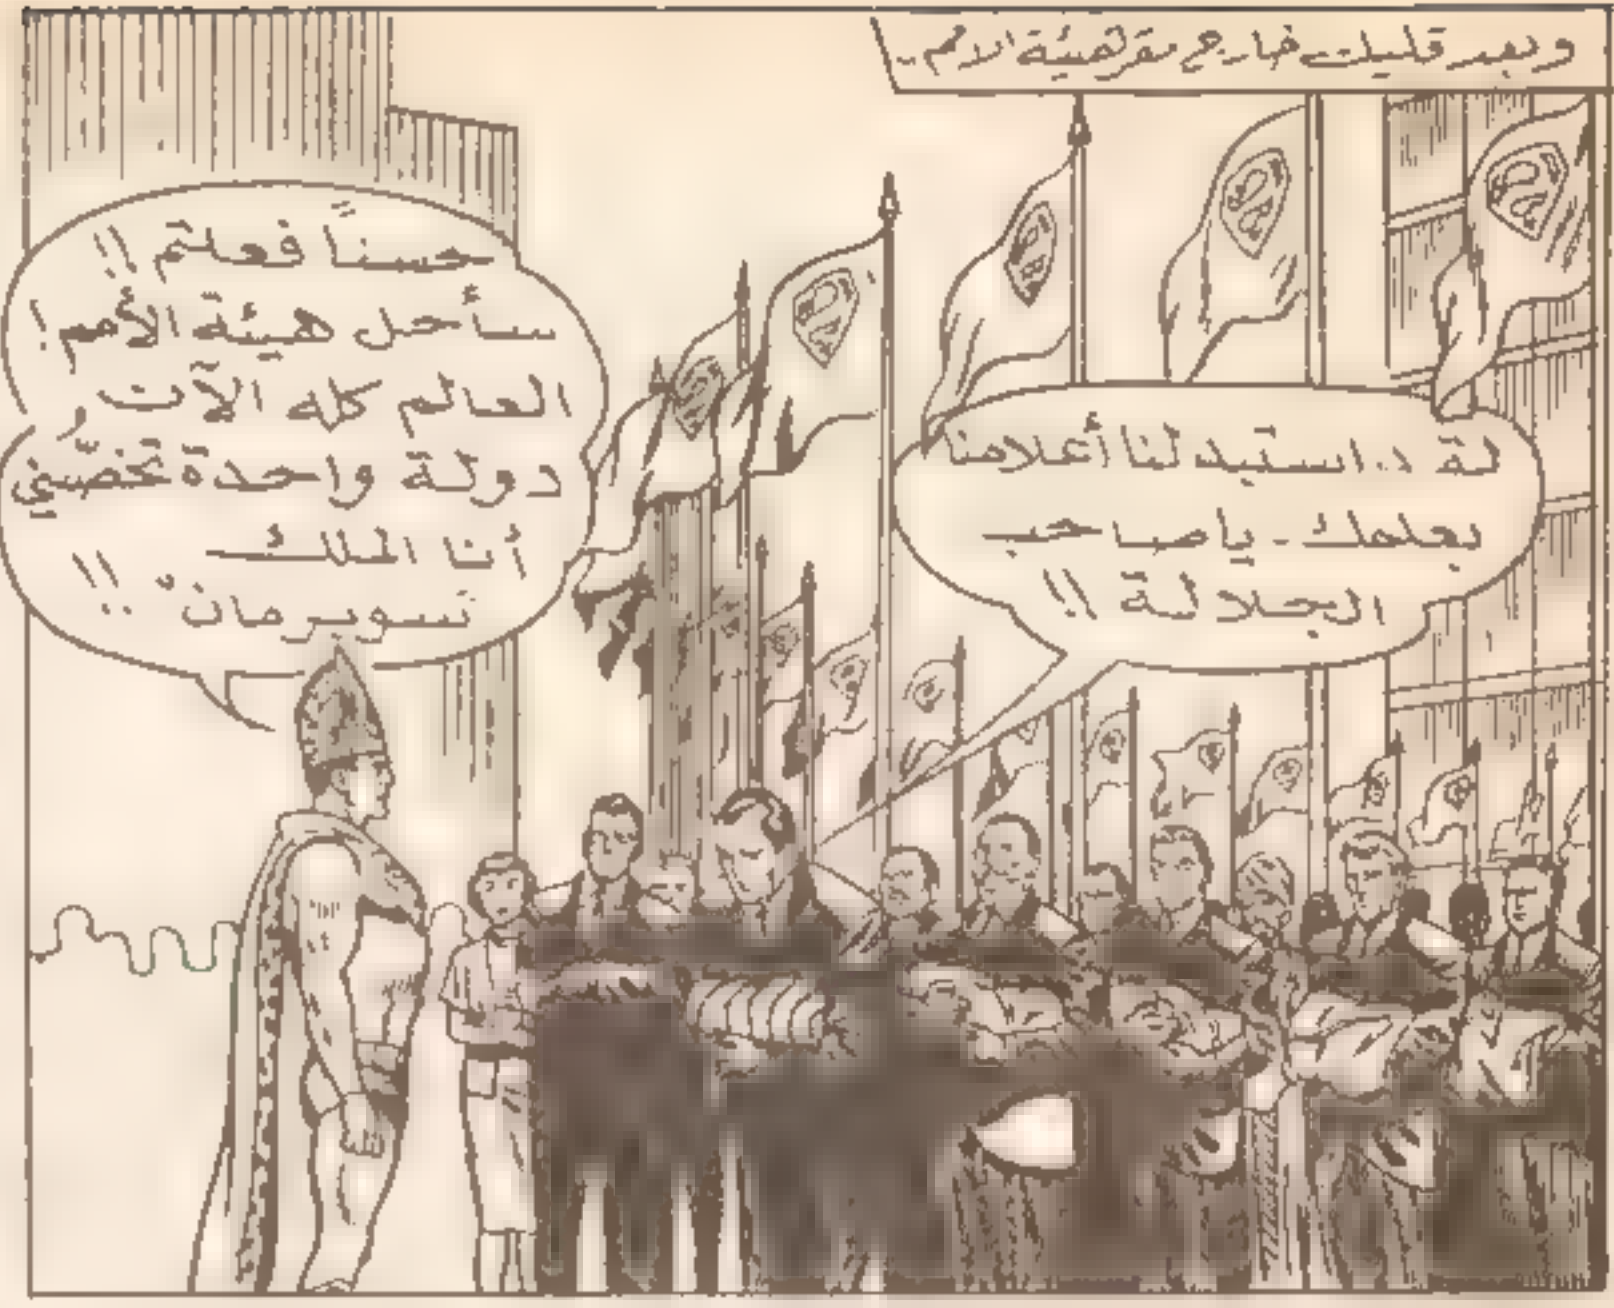 وبعد قليل خارج مقر هيئة الامم..
لقد استبدلنا أعلامنا
بعلمك - ياصاحب
الجلالة !!
حسناً فعلتم !!
سأحل هيئة الأمم !
العالم كله الآن
دولة واحدة تخصّني
أنا الملك
سوبرمان" !!